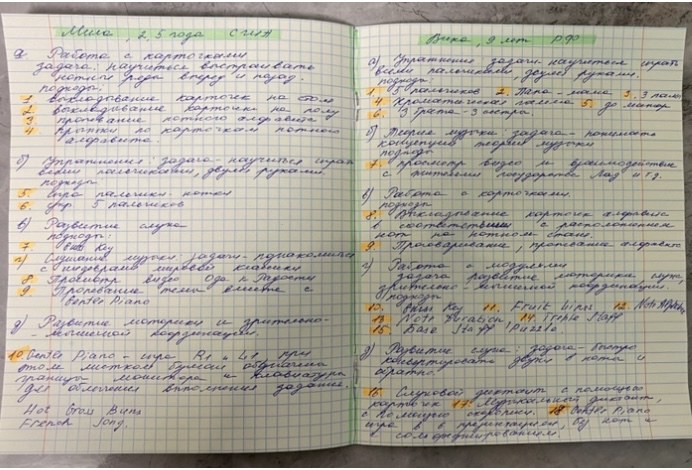 Мила, 2,5 года США
а) Работа с карточками
задача: научиться выстраивать
нотные ряды вперед и назад.
подходы:
1 выкладывание карточек на столе
2 выкладывание карточек на полу
3 пропевание нотного алфавита
4 прыжки по карточкам нотного
алфавита.
б) Упражнения: задача - научиться играть
всеми пальчиками, двумя руками.
подходы
5 игра пальчики - нотки
6 упр. 5 пальчиков
в) Развитие слуха
подходы:
7 Key
г) Слушание музыки задача: познакомиться
с шедеврами мировой классики
8 Просмотр видео Ода к Радости
9 Пропевание темы вместе с
Gentle Piano
д) Развитие моторики и зрительно-
мышечной координации.
10 Gentle Piano - игра R1 и L1, при
этом листком бумаги обозначить
границы монитора и клавиатуры
для облегчения выполнения задания.
Hot Cross Buns
French Song.
Вика, 9 лет РФ
а) Упражнения задача: научиться играть
всеми пальчиками двумя руками.
подходы:
1. 5 пальчиков 2. Папа-мама 3. 3
4 Хроматическая гамма 5. до минор
6. 3 брата - 3 сестры.
б) Теория музыки: задача - понимать
концепцию теории музыки
подходы
7. просмотр видео и взаимодействие
с жителями государства Лад и т.д.
в) Работа с карточками.
подходы
8. Выкладывание карточек алфавита
в соответствии с расположением
нот на нотном стане.
9. Проговаривание, пропевание алфавита
г) Работа с модулями
задача: развитие моторики слуха,
зрительно-мышечной координации.
подходы
10. Key 11. Fruit Lines 12. Note Alphabet
13 Note Duration 14. Treble Staff
15. Bass Staff Puzzle.
д) Развитие слуха: задача - быстро
конвертировать звуки в ноты и
обратно.
16. Слуховой диктант с помощью
карточек 17. Музыкальный диктант,
с помощью 18. Gentle Piano
игра в 6 презентации, без нот и
сольфеджированием